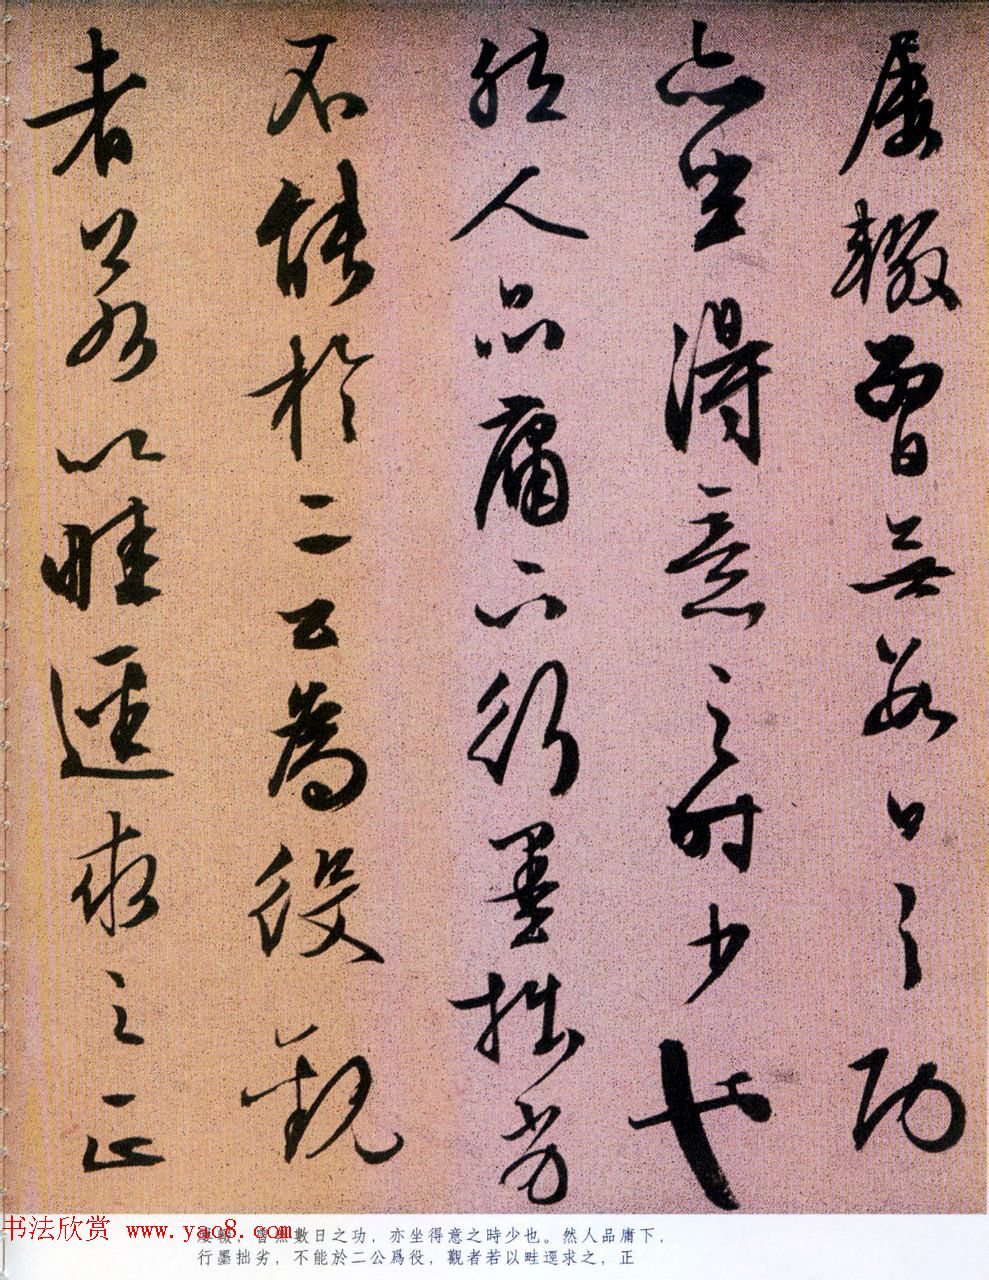 屡輟曾無數日之功
亦坐得意之时少也
然人品庸下行墨拙劣
不能於二公為役觀
者若以畦逕求之正
书法欣赏 www.yac8.com
輟，曾無數日之功，亦坐得意之時少也。然人品庸下，
行墨拙劣，不能於二公爲役，觀者若以畦逕求之，正